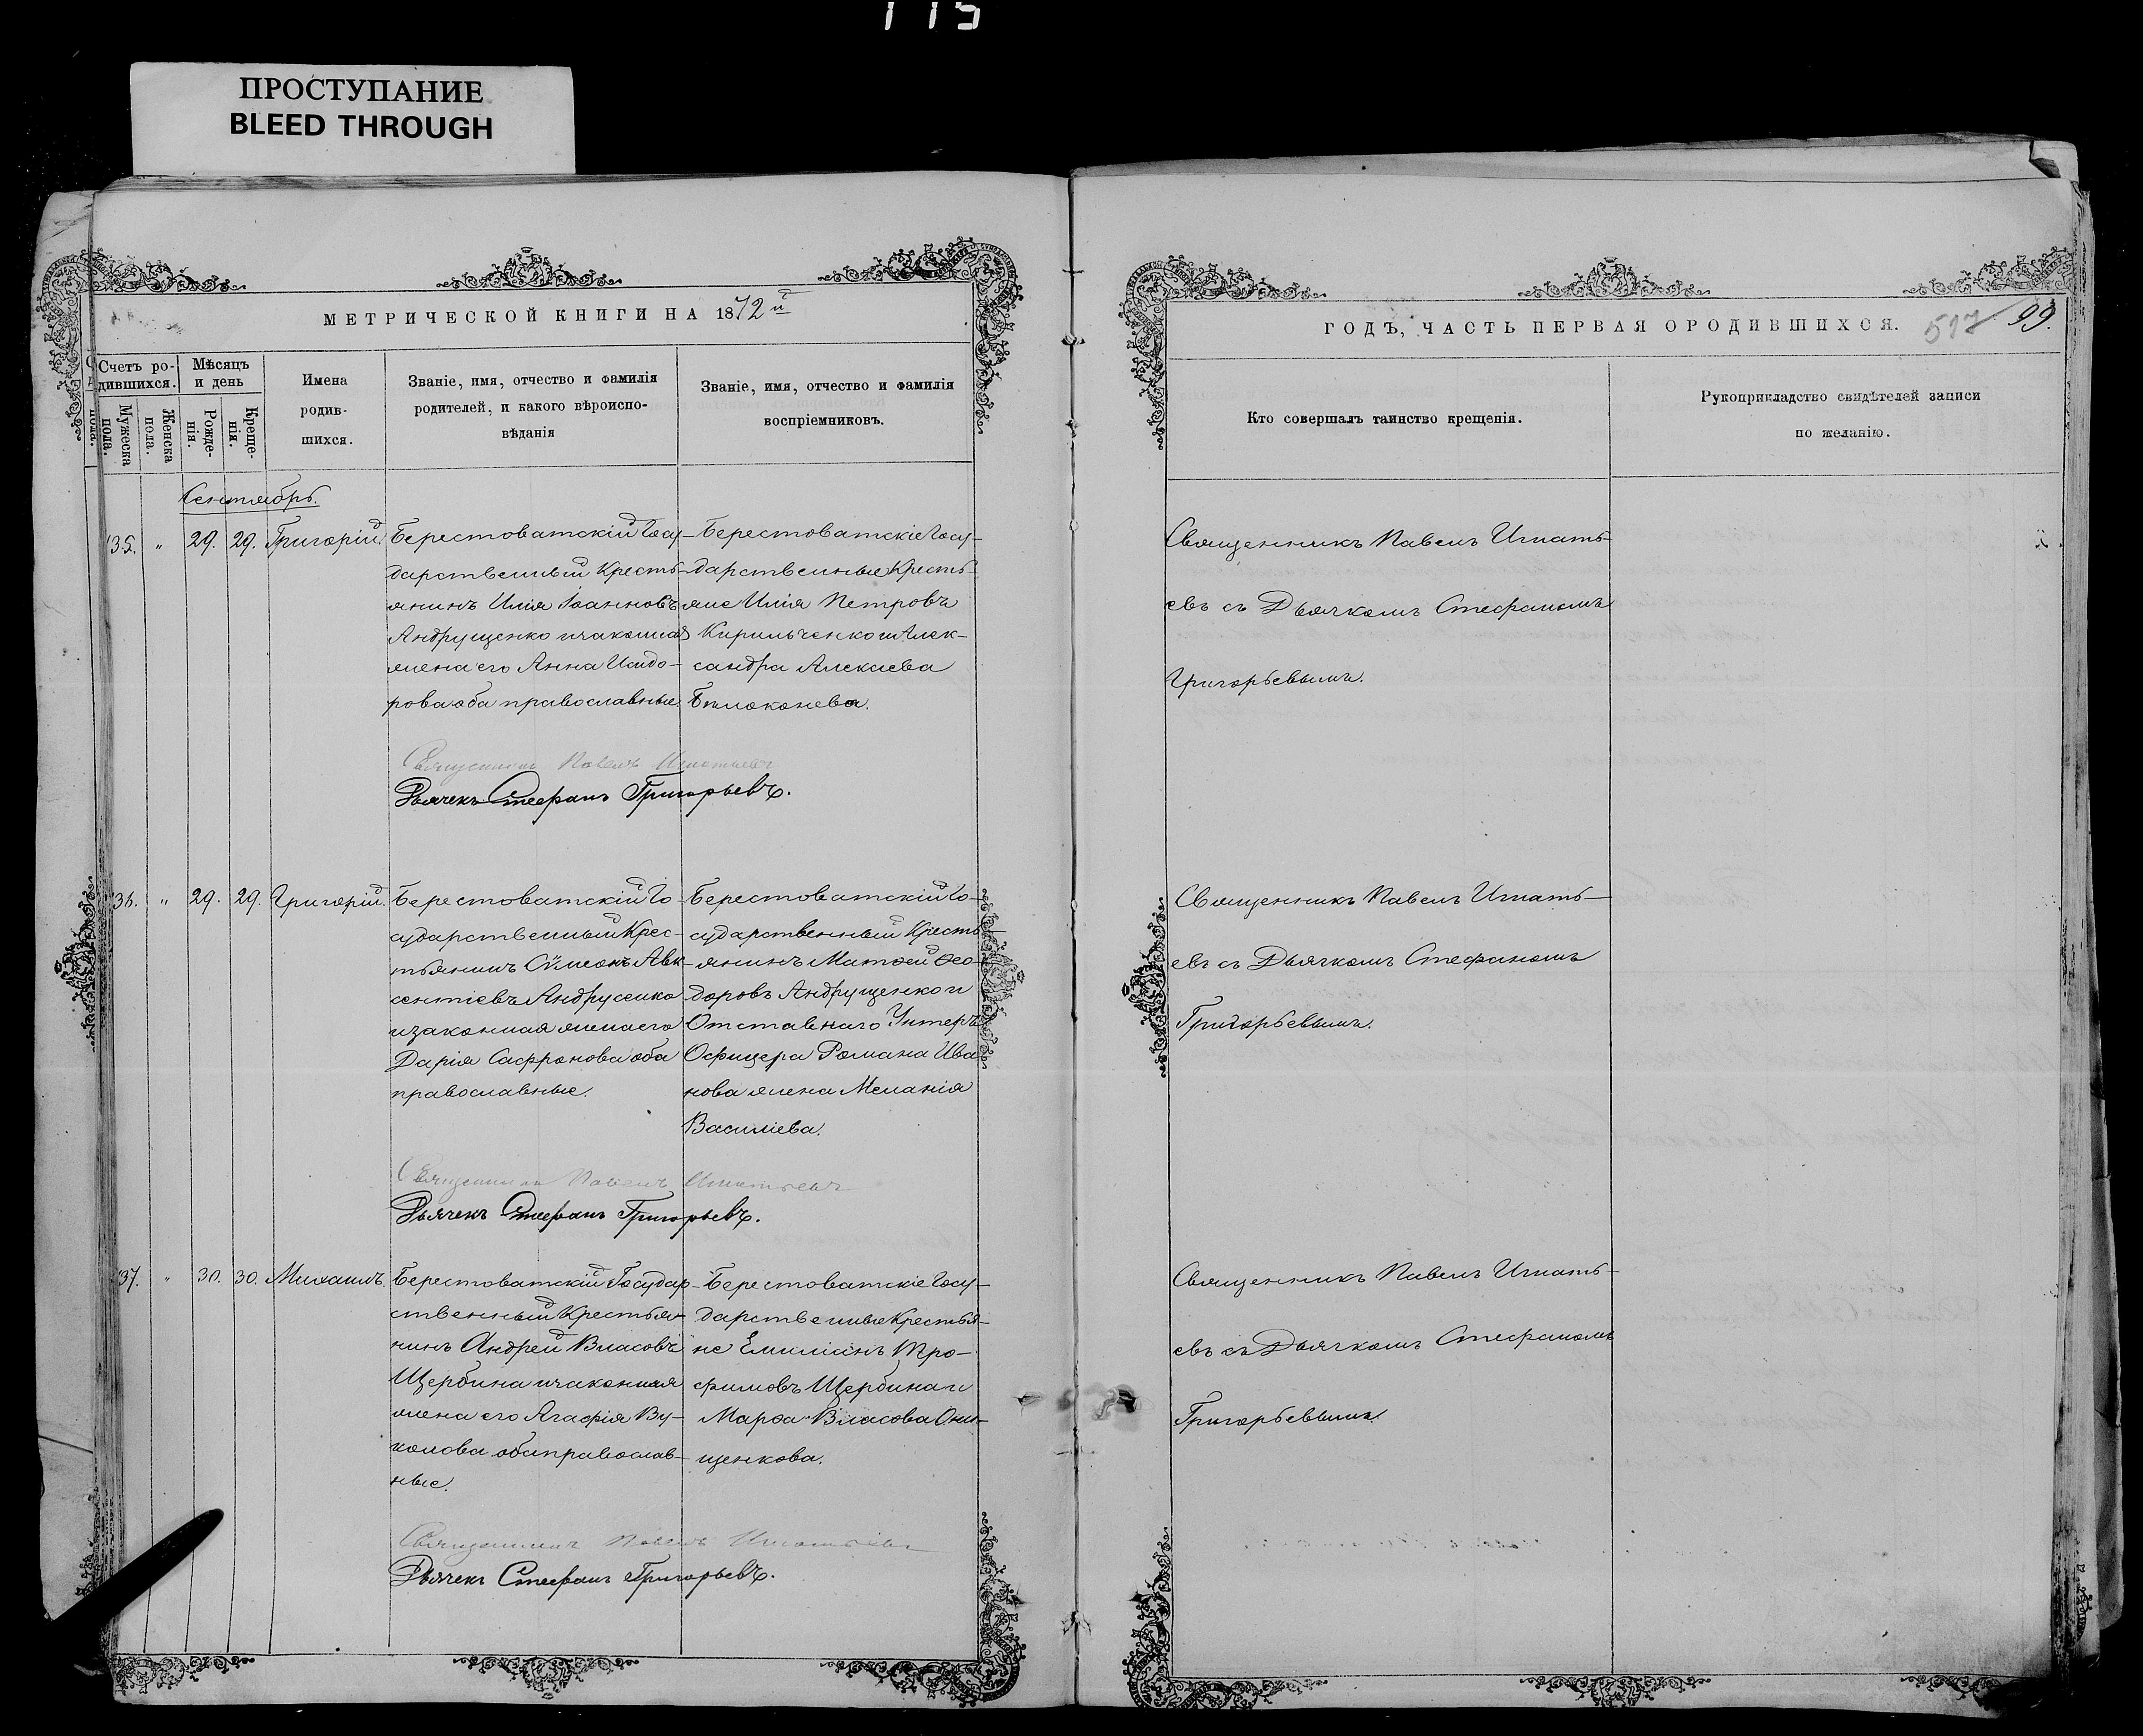 115
ПРОСТУПАНИЕ
BLEED THROUGH
МЕТРИЧЕСКОЙ КНИГИ НА 1872й
Счетъ ро-
дившихся.
Мужеска
пола.
Женска
пола.
Мѣсяцъ
и день
Рожде-
нія.
Креще-
нія.
Имена
родив-
шихся.
Званіе, имя, отчество и фамилія
родителей, и какого вѣроиспо-
вѣданія
Званіе, имя, отчество и фамилія
воспріемниковъ.
Сентябрь.
135. " 29. 29. Григорій.
Берестоватскій Госу-
дарственный Кресть-
янинъ Илія Іоанновъ
Андрущенко и законная
жена его Анна Исидо-
рова оба православные.
Берестоватскіе Госу-
дарственные Кресть-
яне Илія Петровъ
Кирильченко и Алек-
сандра Алексіева
Бѣлоконева.
Священникъ Павелъ Игнатьевъ
Дьячекъ Стефанъ Григорьевъ.
136. " 29. 29. Григорій.
Берестоватскій Го-
сударственный Крес-
тьянинъ Сѵмеонъ Авк-
сентіевъ Андрусенко
и законная жена его
Дарія Сафронова оба
православные.
Берестоватскій Го-
сударственный Кресть-
янинъ Матѳей Ѳео-
доровъ Андрущенко и
Отставнаго Унтеръ
Офицера Романа Ива
нова жена Меланія
Василіева.
Священникъ Павелъ Игнатьевъ
Дьячекъ Стефанъ Григорьевъ.
137. " 30. 30. Михаилъ.
Берестоватскій Государ-
ственный Крестья-
нинъ Андрей Власовъ
Щербина и законная
жена его Агафія Ву-
колова оба православ-
ные.
Берестоватскіе Госу-
дарственные Крестья-
не Емиліанъ Тро-
фимовъ Щербина и
Марѳа Власова Они-
щенкова.
Священникъ Павелъ Игнатьевъ
Дьячекъ Стефанъ Григорьевъ.
ГОДЪ, ЧАСТЬ ПЕРВАЯ О РОДИВШИХСЯ.
517 99.
Кто совершалъ таинство крещенія.
Рукоприкладство свидѣтелей записи
по желанію.
Священникъ Павелъ Игнать-
евъ съ Дьячкомъ Стефаномъ
Григорьевымъ.
Священникъ Павелъ Игнать-
евъ съ Дьячкомъ Стефаномъ
Григорьевымъ.
Священникъ Павелъ Игнать-
евъ съ Дьячкомъ Стефаномъ
Григорьевымъ.